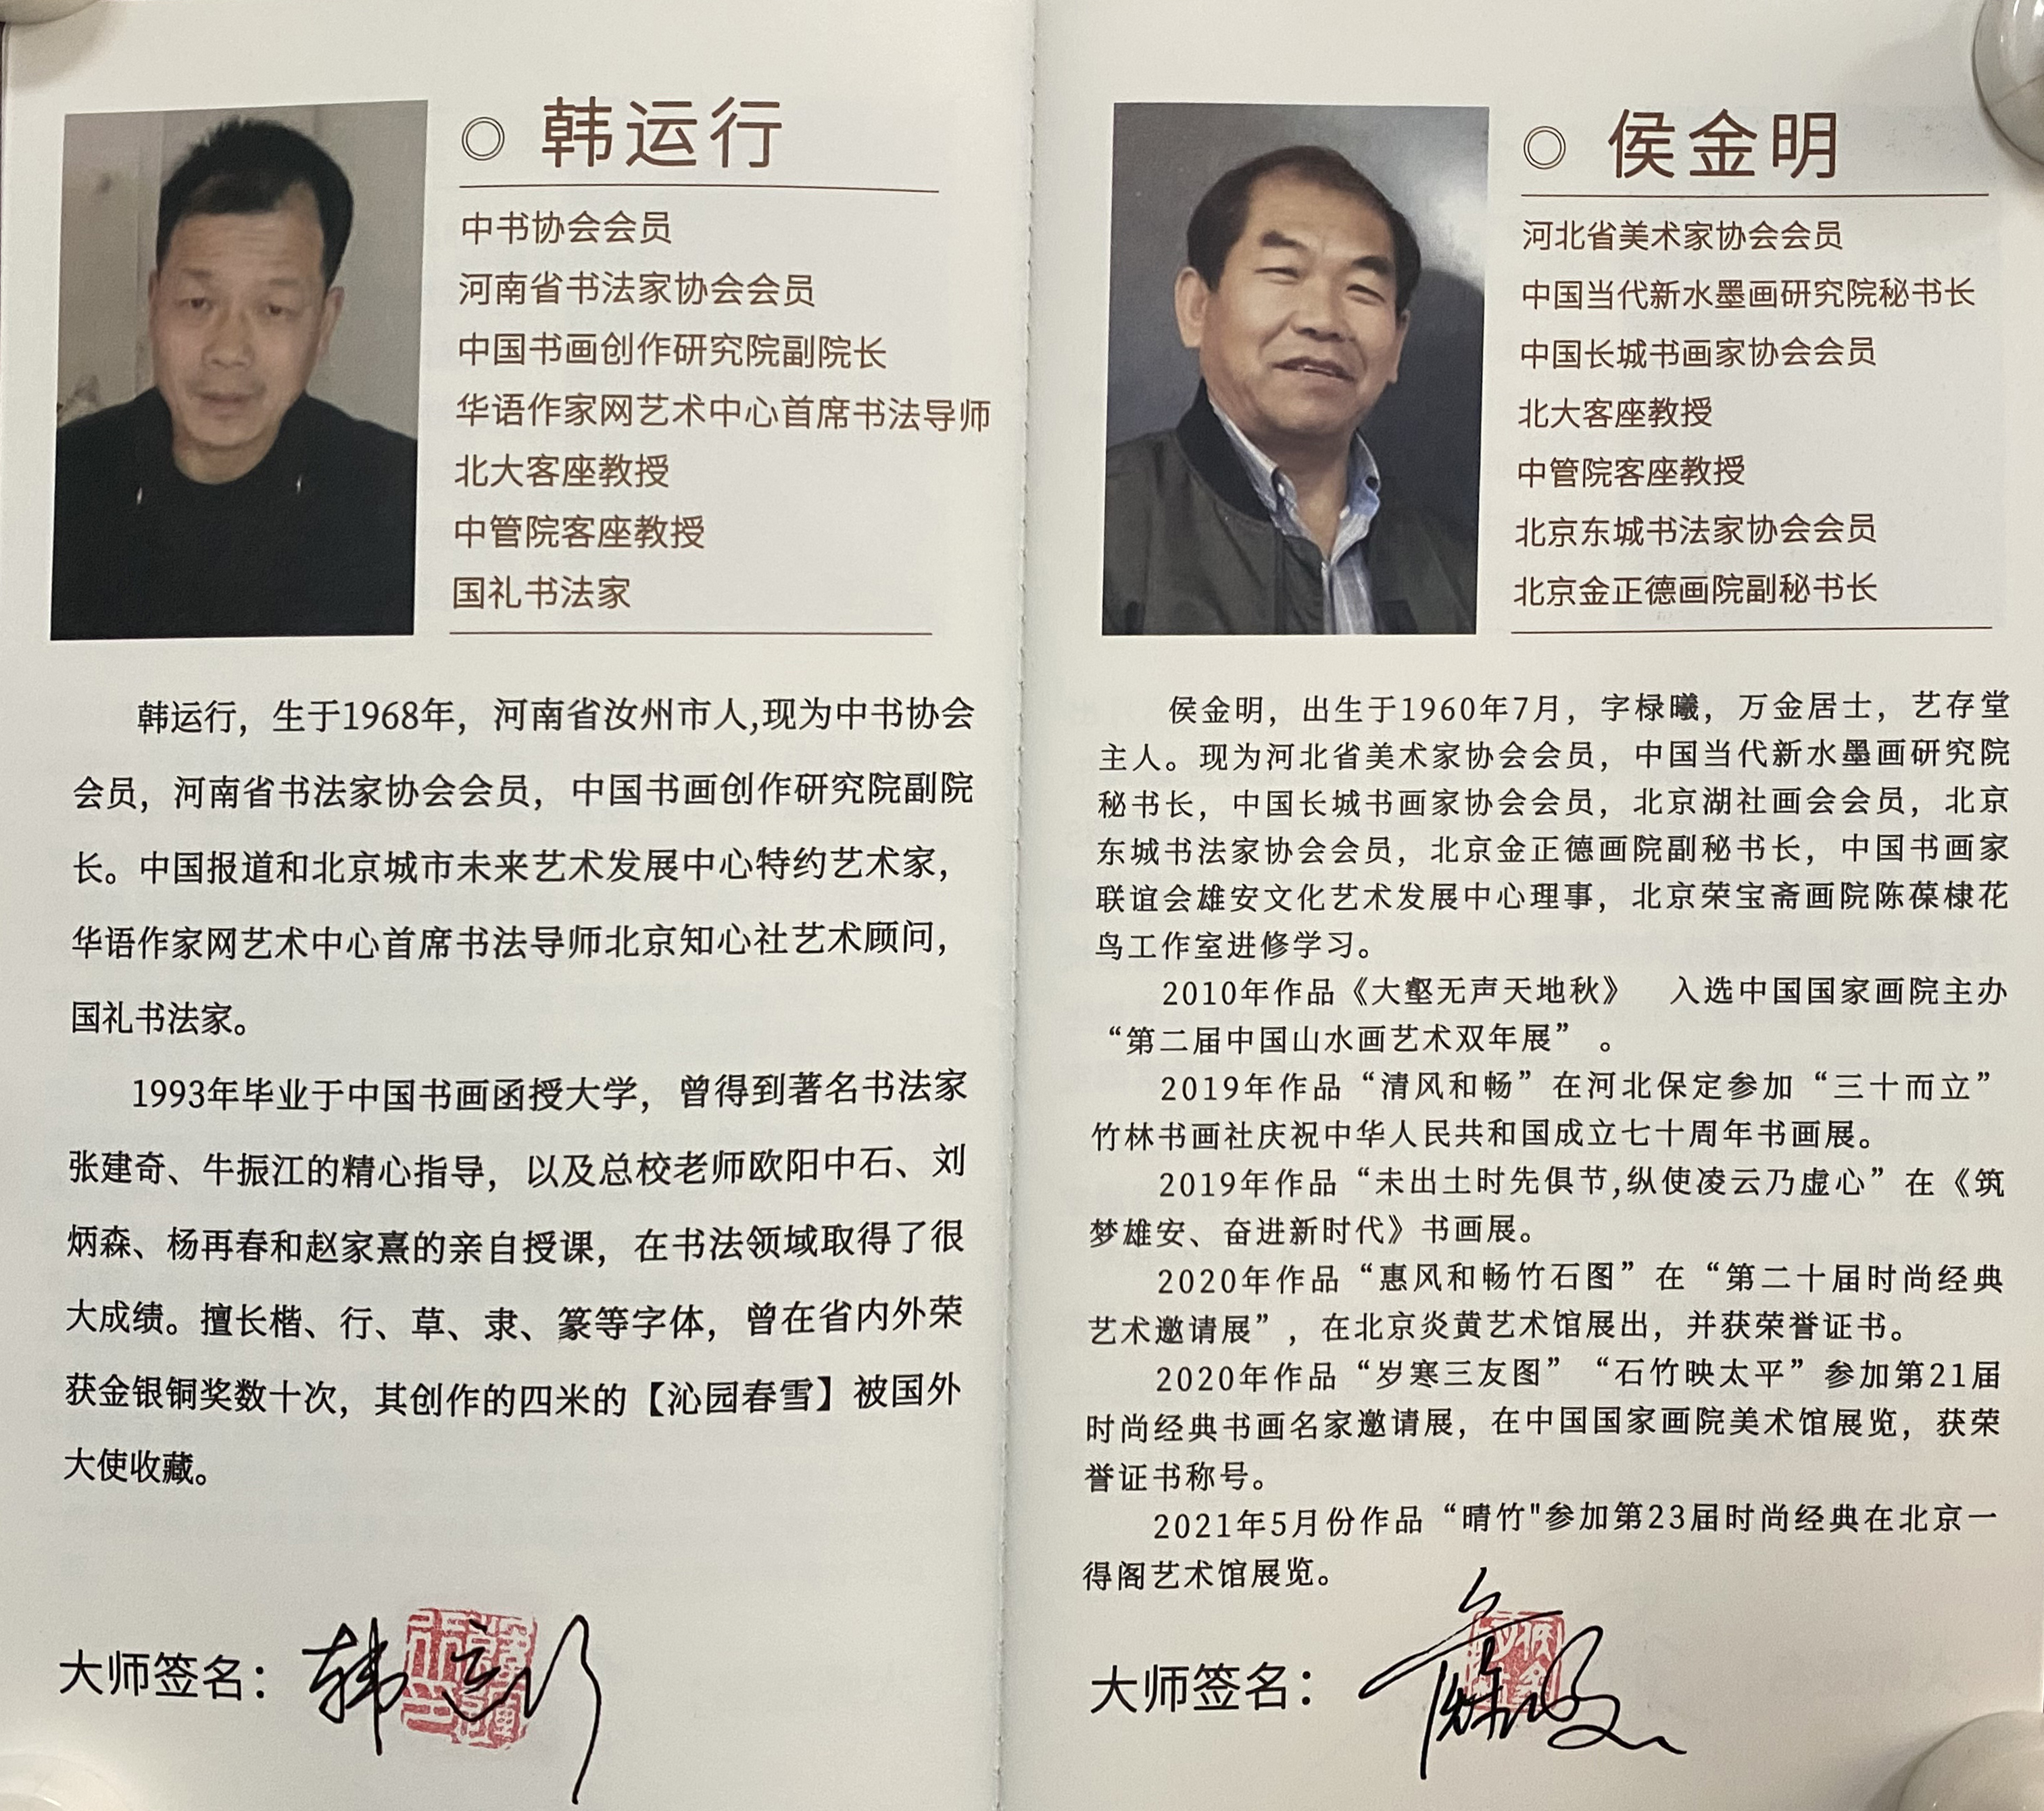 ◎ 韩运行
中书协会会员
河南省书法家协会会员
中国书画创作研究院副院长
华语作家网艺术中心首席书法导师
北大客座教授
中管院客座教授
国礼书法家
韩运行，生于1968年，河南省汝州市人,现为中书协会
会员，河南省书法家协会会员，中国书画创作研究院副院
长。中国报道和北京城市未来艺术发展中心特约艺术家，
华语作家网艺术中心首席书法导师北京知心社艺术顾问，
国礼书法家。
1993年毕业于中国书画函授大学，曾得到著名书法家
张建奇、牛振江的精心指导，以及总校老师欧阳中石、刘
炳森、杨再春和赵家熹的亲自授课，在书法领域取得了很
大成绩。擅长楷、行、草、隶、篆等字体，曾在省内外荣
获金银铜奖数十次，其创作的四米的【沁园春雪】被国外
大使收藏。
大师签名：韩运行
◎ 侯金明
河北省美术家协会会员
中国当代新水墨画研究院秘书长
中国长城书画家协会会员
北大客座教授
中管院客座教授
北京东城书法家协会会员
北京金正德画院副秘书长
侯金明，出生于1960年7月，字椂曦，万金居士，艺存堂
主人。现为河北省美术家协会会员，中国当代新水墨画研究院
秘书长，中国长城书画家协会会员，北京湖社画会会员，北京
东城书法家协会会员，北京金正德画院副秘书长，中国书画家
联谊会雄安文化艺术发展中心理事，北京荣宝斋画院陈葆棣花
鸟工作室进修学习。
2010年作品《大壑无声天地秋》　入选中国国家画院主办
“第二届中国山水画艺术双年展” 。
2019年作品“清风和畅”在河北保定参加“三十而立”
竹林书画社庆祝中华人民共和国成立七十周年书画展。
2019年作品“未出土时先俱节,纵使凌云乃虚心”在《筑
梦雄安、奋进新时代》书画展。
2020年作品“惠风和畅竹石图”在“第二十届时尚经典
艺术邀请展”，在北京炎黄艺术馆展出，并获荣誉证书。
2020年作品“岁寒三友图”“石竹映太平”参加第21届
时尚经典书画名家邀请展，在中国国家画院美术馆展览，获荣
誉证书称号。
2021年5月份作品“晴竹"参加第23届时尚经典在北京一
得阁艺术馆展览。
大师签名：